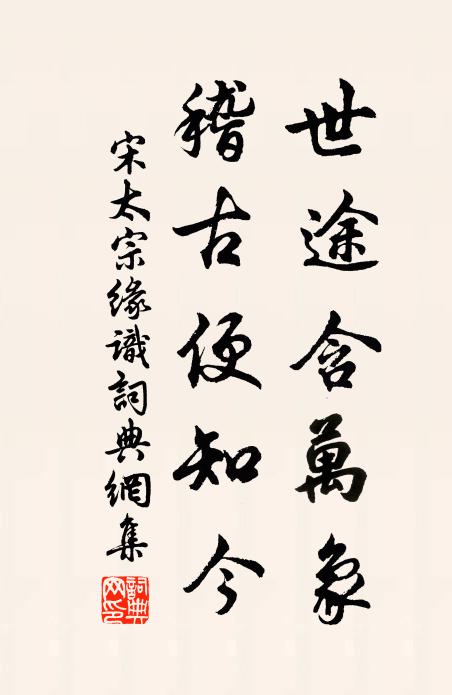 世途含萬象
稽古便知今
宋太宗緣識詞典網集
詞典網印